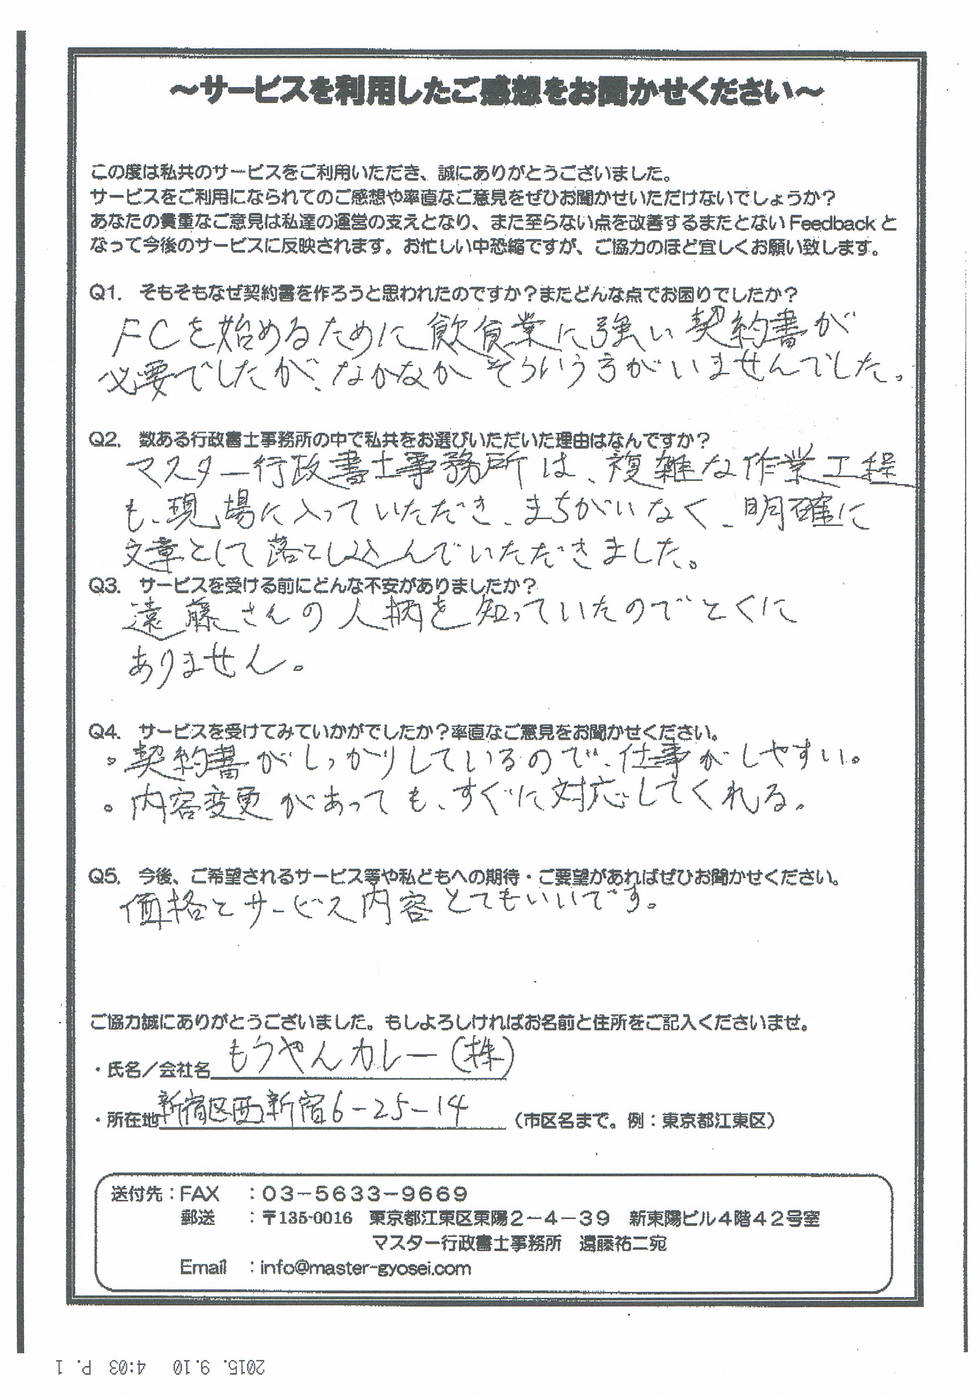 ～サービスを利用したご感想をお聞かせください～
この度は私共のサービスをご利用いただき、誠にありがとうございました。
サービスをご利用になられてのご感想や率直なご意見をぜひお聞かせいただけないでしょうか？
あなたの貴重なご意見は私達の運営の支えとなり、また至らない点を改善するまたとない Feedback と
なって今後のサービスに反映されます。お忙しい中恐縮ですが、ご協力のほど宜しくお願い致します。
Q1. そもそもなぜ契約書を作ろうと思われたのですか？またどんな点でお困りでしたか？
FCを始めるために飲食業に強い契約書が
必要でしたが、なかなかそういう方がいませんでした。
Q2. 数ある行政書士事務所の中で私共をお選びいただいた理由はなんですか？
マスター行政書士事務所は、複雑な作業工程
も、現場に入っていただき、まちがいなく、明確に
文章として落とし込んでいただきました。
Q3. サービスを受ける前にどんな不安がありましたか？
遠藤さんの人柄を知っていたのでとくに
ありません。
Q4. サービスを受けてみていかがでしたか？率直なご意見をお聞かせください。
。契約書がしっかりしているので、仕事がしやすい。
。内容変更があっても、すぐに対応してくれる。
Q5. 今後、ご希望されるサービス等や私どもへの期待・ご要望があればぜひお聞かせください。
価格とサービス内容とてもいいです。
ご協力誠にありがとうございました。もしよろしければお名前と住所をご記入くださいませ。
・氏名／会社名 もうやんカレー(株)
・所在地 新宿区西新宿6-25-14 （市区名まで。例：東京都江東区）
送付先：FAX ：０３－５６３３－９６６９
郵送 ：〒135-0016 東京都江東区東陽２－４－３９ 新東陽ビル４階４２号室
マスター行政書士事務所 遠藤祐二宛
Email ：info@master-gyosei.com
2015. 9.10 4:03 P. 1